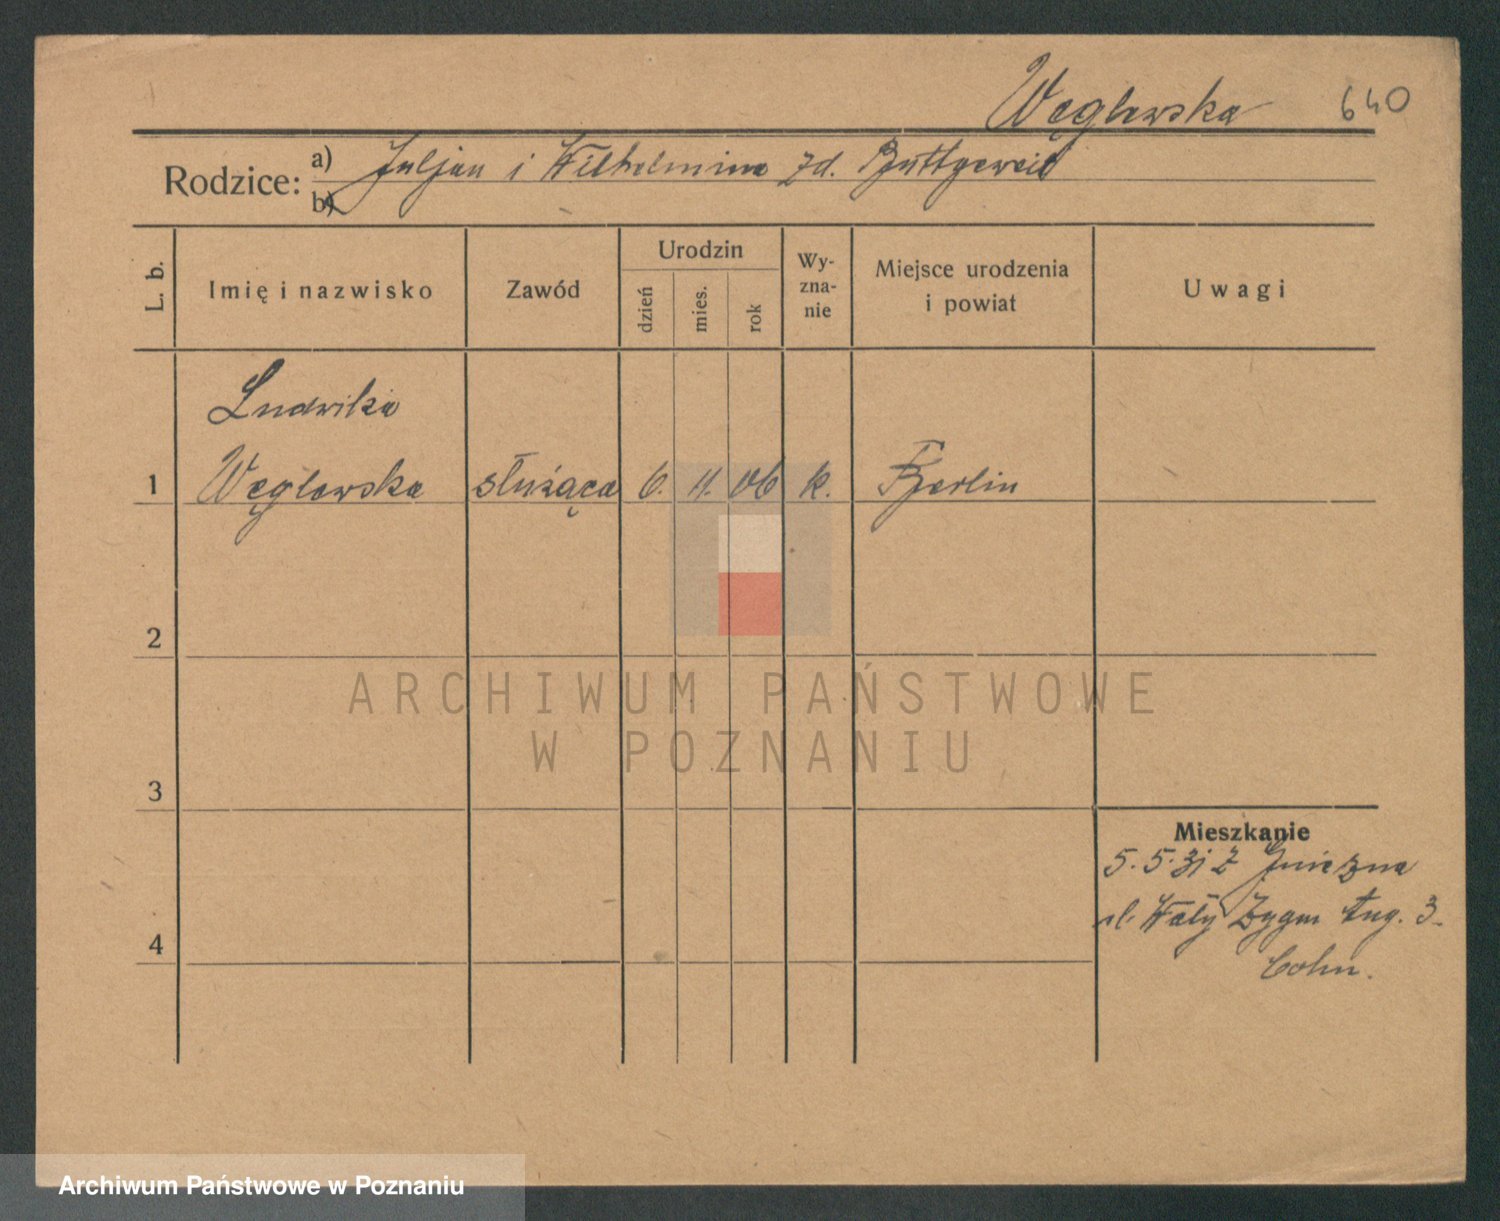 Węglewska 640
Rodzice: a) Juljan i Wilhelmina zd. Buttgereit
b)
L. b.
Imię i nazwisko
Zawód
Urodzin
dzień
mies.
rok
Wy-
zna-
nie
Miejsce urodzenia
i powiat
Uwagi
Ludwika
1 Węglewska służąca 6. 11. 06 k. Berlin
2
ARCHIWUM PAŃSTWOWE
W POZNANIU
3
Mieszkanie
5. 5. 31 z Gniezna
ul. Wały Zygm Aug. 3.
4
Cohn.
Archiwum Państwowe w Poznaniu